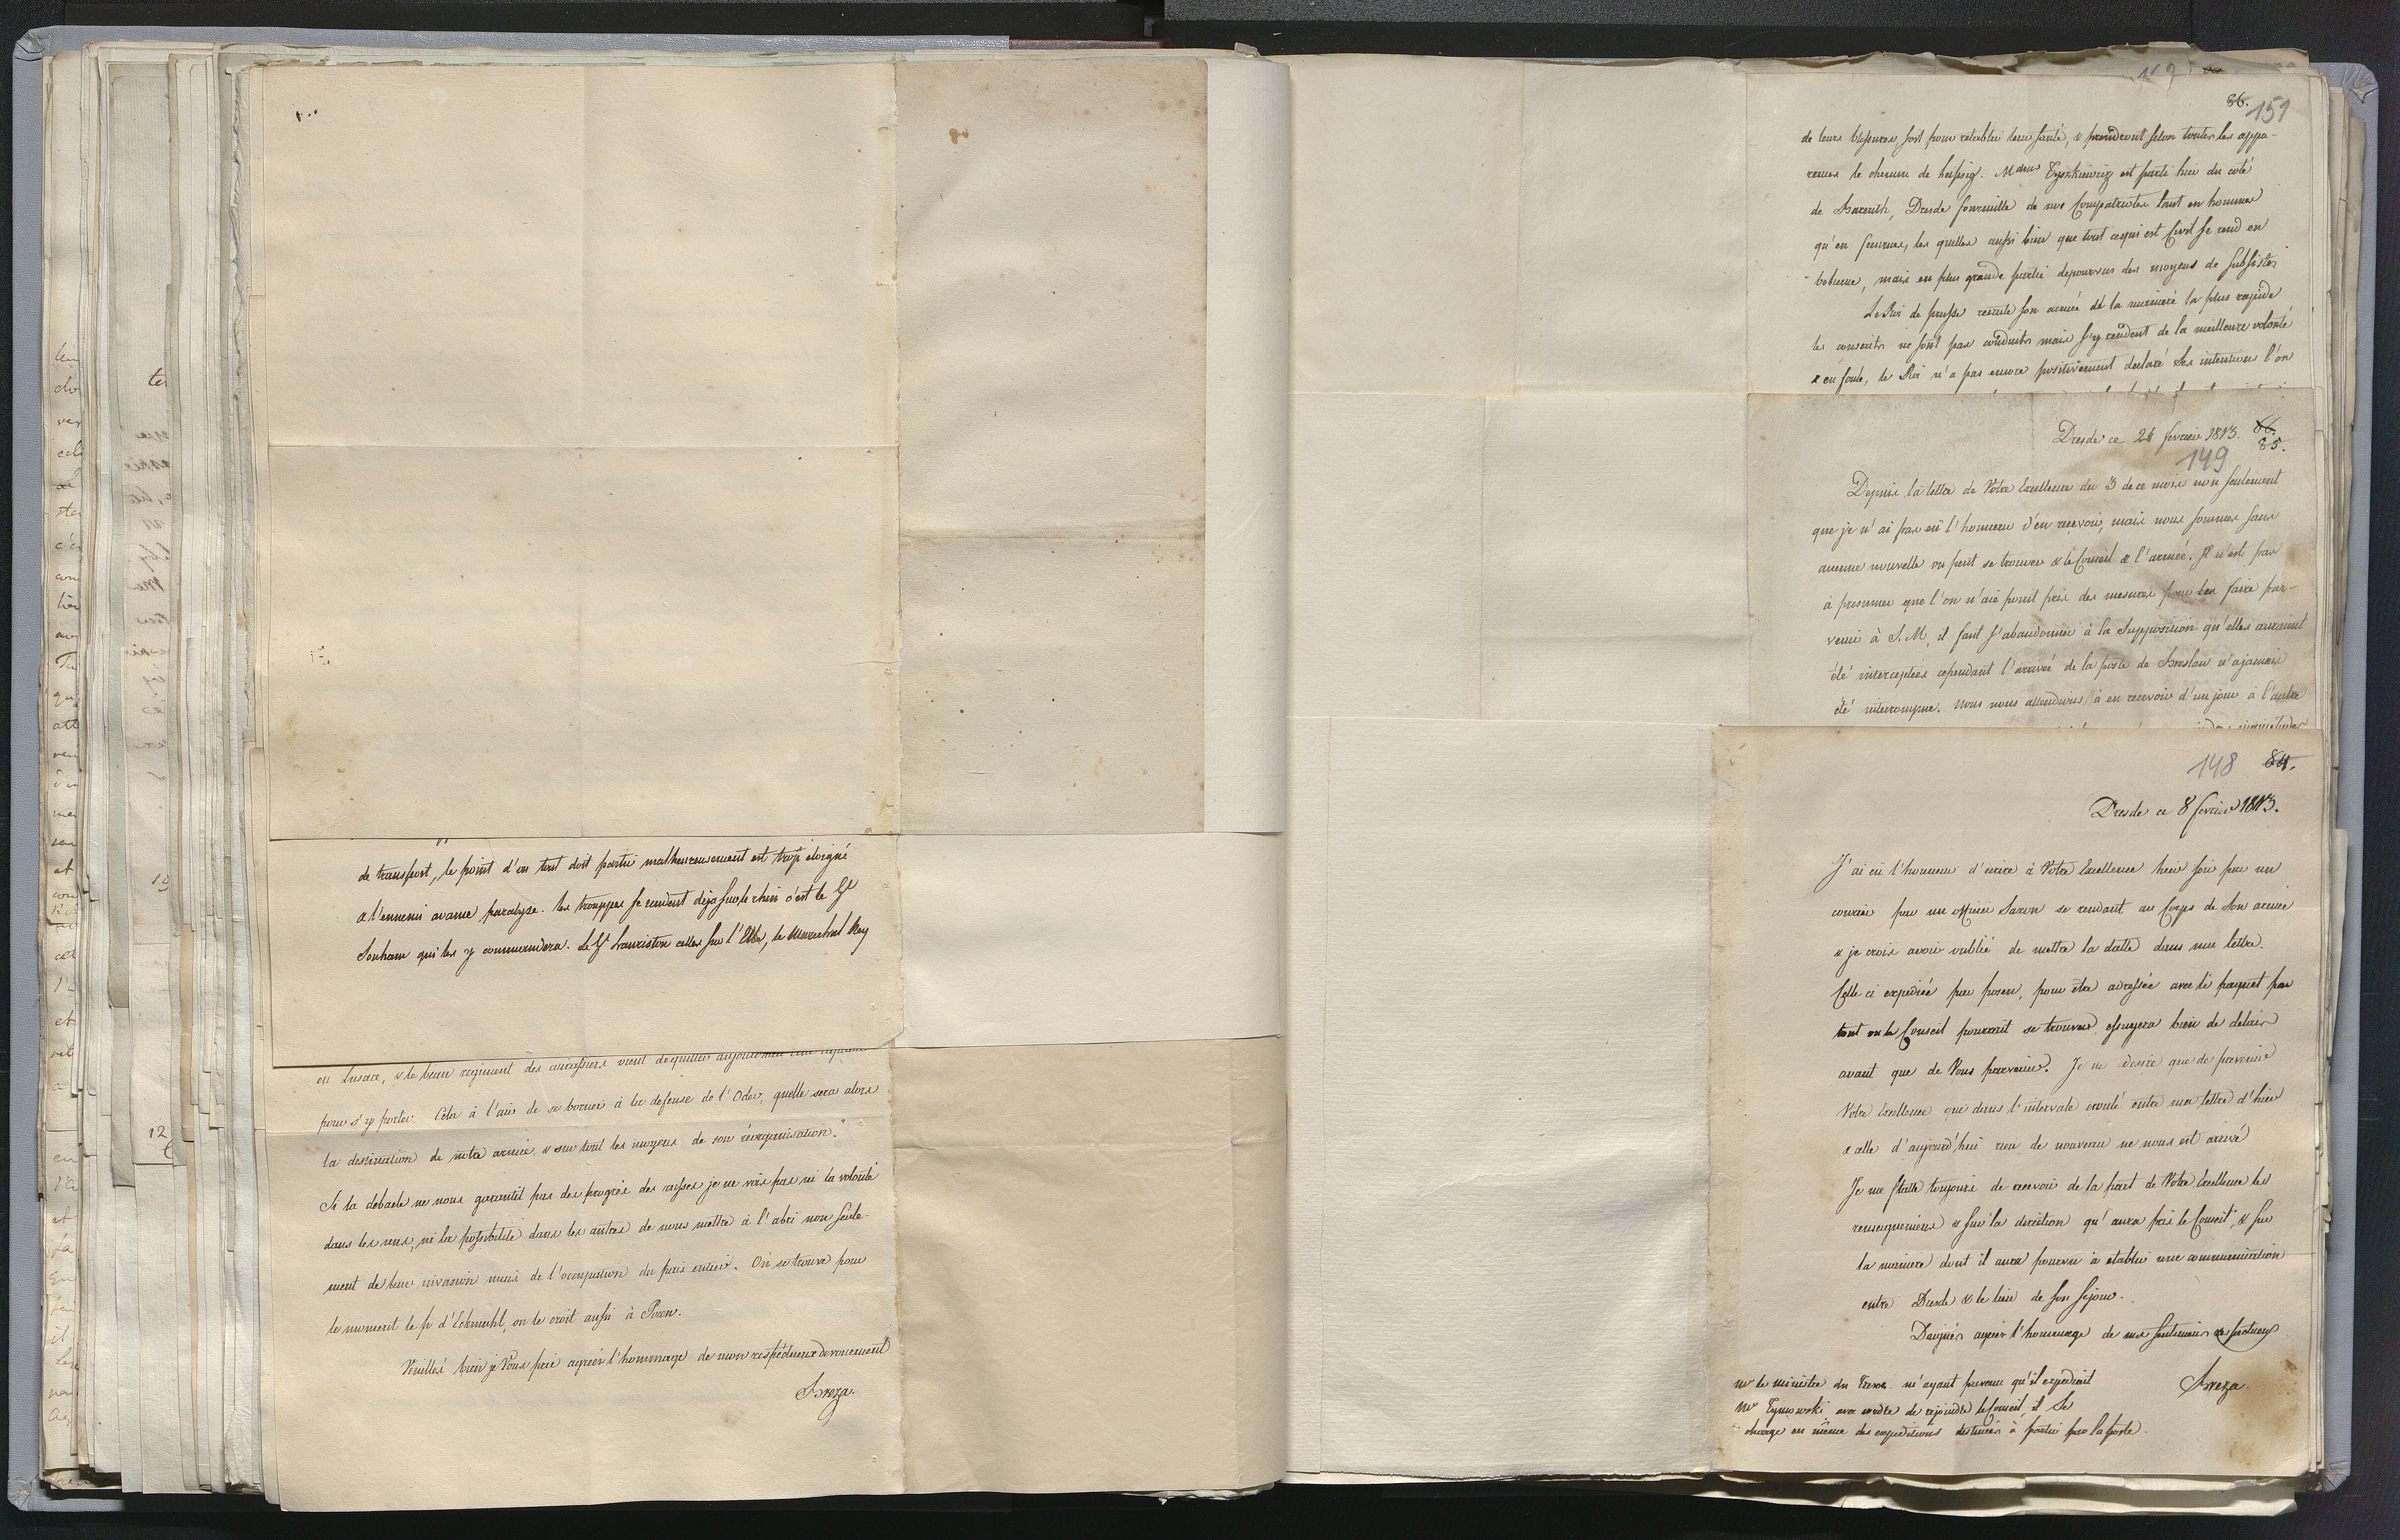 de transport, le point d'ou tout doit partir malheureusement est trop eloigné
& l'ennemi avance paralyse. les trouppes se rendent deja sur le rhin c'est le Gl
Souham qui les y commandera. Le Gl Lauriston celles sur l'Elbe, le Marechal Ney
en Lusace, & le beau regiment des cuirassiers vient de quitter aujourd'hui
pour s'y porter. Cela à l'air de se borner à la defense de l'Oder, quelle sera alors
la destination de notre armée, & sur tout les moyens de son réorganisation.
Si la debacle ne nous garantit pas des progrès des russes je ne vois pas ni la volonté
dans les uns, ni la possibilité dans les autres de nous mettre à l'abri non seule-
ment de leur invasion mais de l'occupation du païs entier. On se trouve pour
le moment le p. d'Eckmuhl, on le croit aussi à Posen.
Veuilléz bien je Vous prie agréer l'hommage de mon respectueux devouement
Breza.
86.
151
de leurs blessures, soit pour retablir leur santé, & prendront selon toutes les appa-
rences le chemin de Leipsig. Mdme Tyszkiewicz est parti hier du coté
de Bareuth, Dresde fourmille de nos Compatriotes tant en hommes
qu'en femmes, les quelles aussi bien que tout ce qui est Civil se rend en
boheme, mais en plus grande partie depourvus des moyens de subsister
Le Roi de prusse recrute son armée de la maniere la plus rapide
les conscrits ne sont pas conduits mais s'y rendent de la meilleure volonté
& en foule, le Roi n'a pas encore positivement declaré ses intentions l'on
Dresde ce 24 fevrier 1813.
86.
85.
149
Depuis la lettre de Votre Excellence du 3 de ce mois non seulement
que je n'ai pas eü l'honneur d'en recevoir, mais nous sommes sans
aucune nouvelle ou peut se trouver & le Conseil & l'armée. Il n'est pas
à presumer que l'on n'aie point pris des mesures pour les faire par-
venir à S.M, il faut s'abandonner à la Supposition qu'elles auraient
été interceptées cependant l'arrivée de la poste de Breslau n'a jamais
été interrompue. Nous nous attendions à en recevoir d'un jour à l'autre
148
84.
Dresde ce 8 fevrier 1813.
J'ai eü l'honneur d'ecrire à Votre Excellence hier soir par un
courier par un officier Saxon se rendant au Corps de Son armée
& je crois avoir oublié de mettre la datte dans ma lettre.
Celle ci expediée par posen, pour être adressée avec le paquet par
tout ou le Conseil pourrait se trouver essuyera bien de delais
avant que de Vous parvenir. Je ne desire que de prevenir
Votre Excellence que dans l'intervale ecoulé entre ma lettre d'hier
& celle d'aujourd'hui rien de nouveau ne nous est arrivé
Je me flatte toujours de recevoir de la part de Votre Excellence les
renseignemens & sur la direction qu'aura pris le Conseil, & sur
la maniere dont il aura pourvu à etablir une communication
entre Dresde & le lieu de son sejour.
Daignés agréer l'hommage de mes sentimens respectueux
Breza.
Mr le ministre du Tresor m'ayant prevenu qu'il expediait
Mr Tymowski avec ordre de rejoindre le Conseil, il se
charge en même des expeditions destinées à partir par la poste.